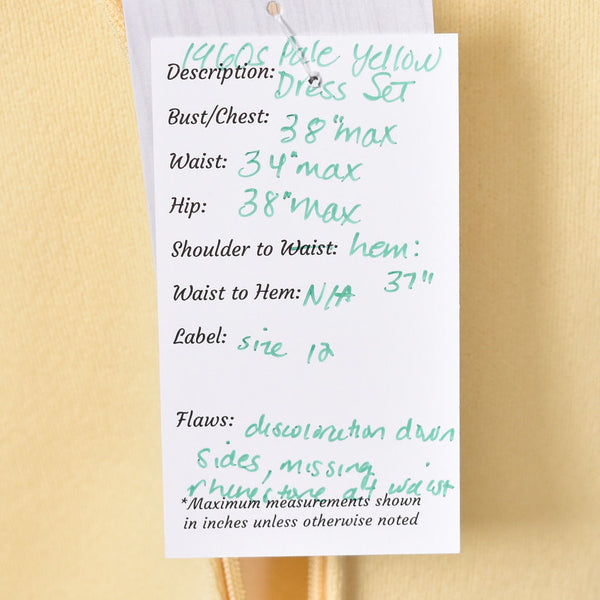 1960s Pale Yellow
Description: Dress Set
Bust/Chest: 38" max
Waist: 34" max
Hip: 38" max
Shoulder to Waist: hem:
37"
Waist to Hem: N/A
Label: size 12
Flaws: discoloration down
sides, missing
rhinestone at waist
*Maximum measurements shown
in inches unless otherwise noted